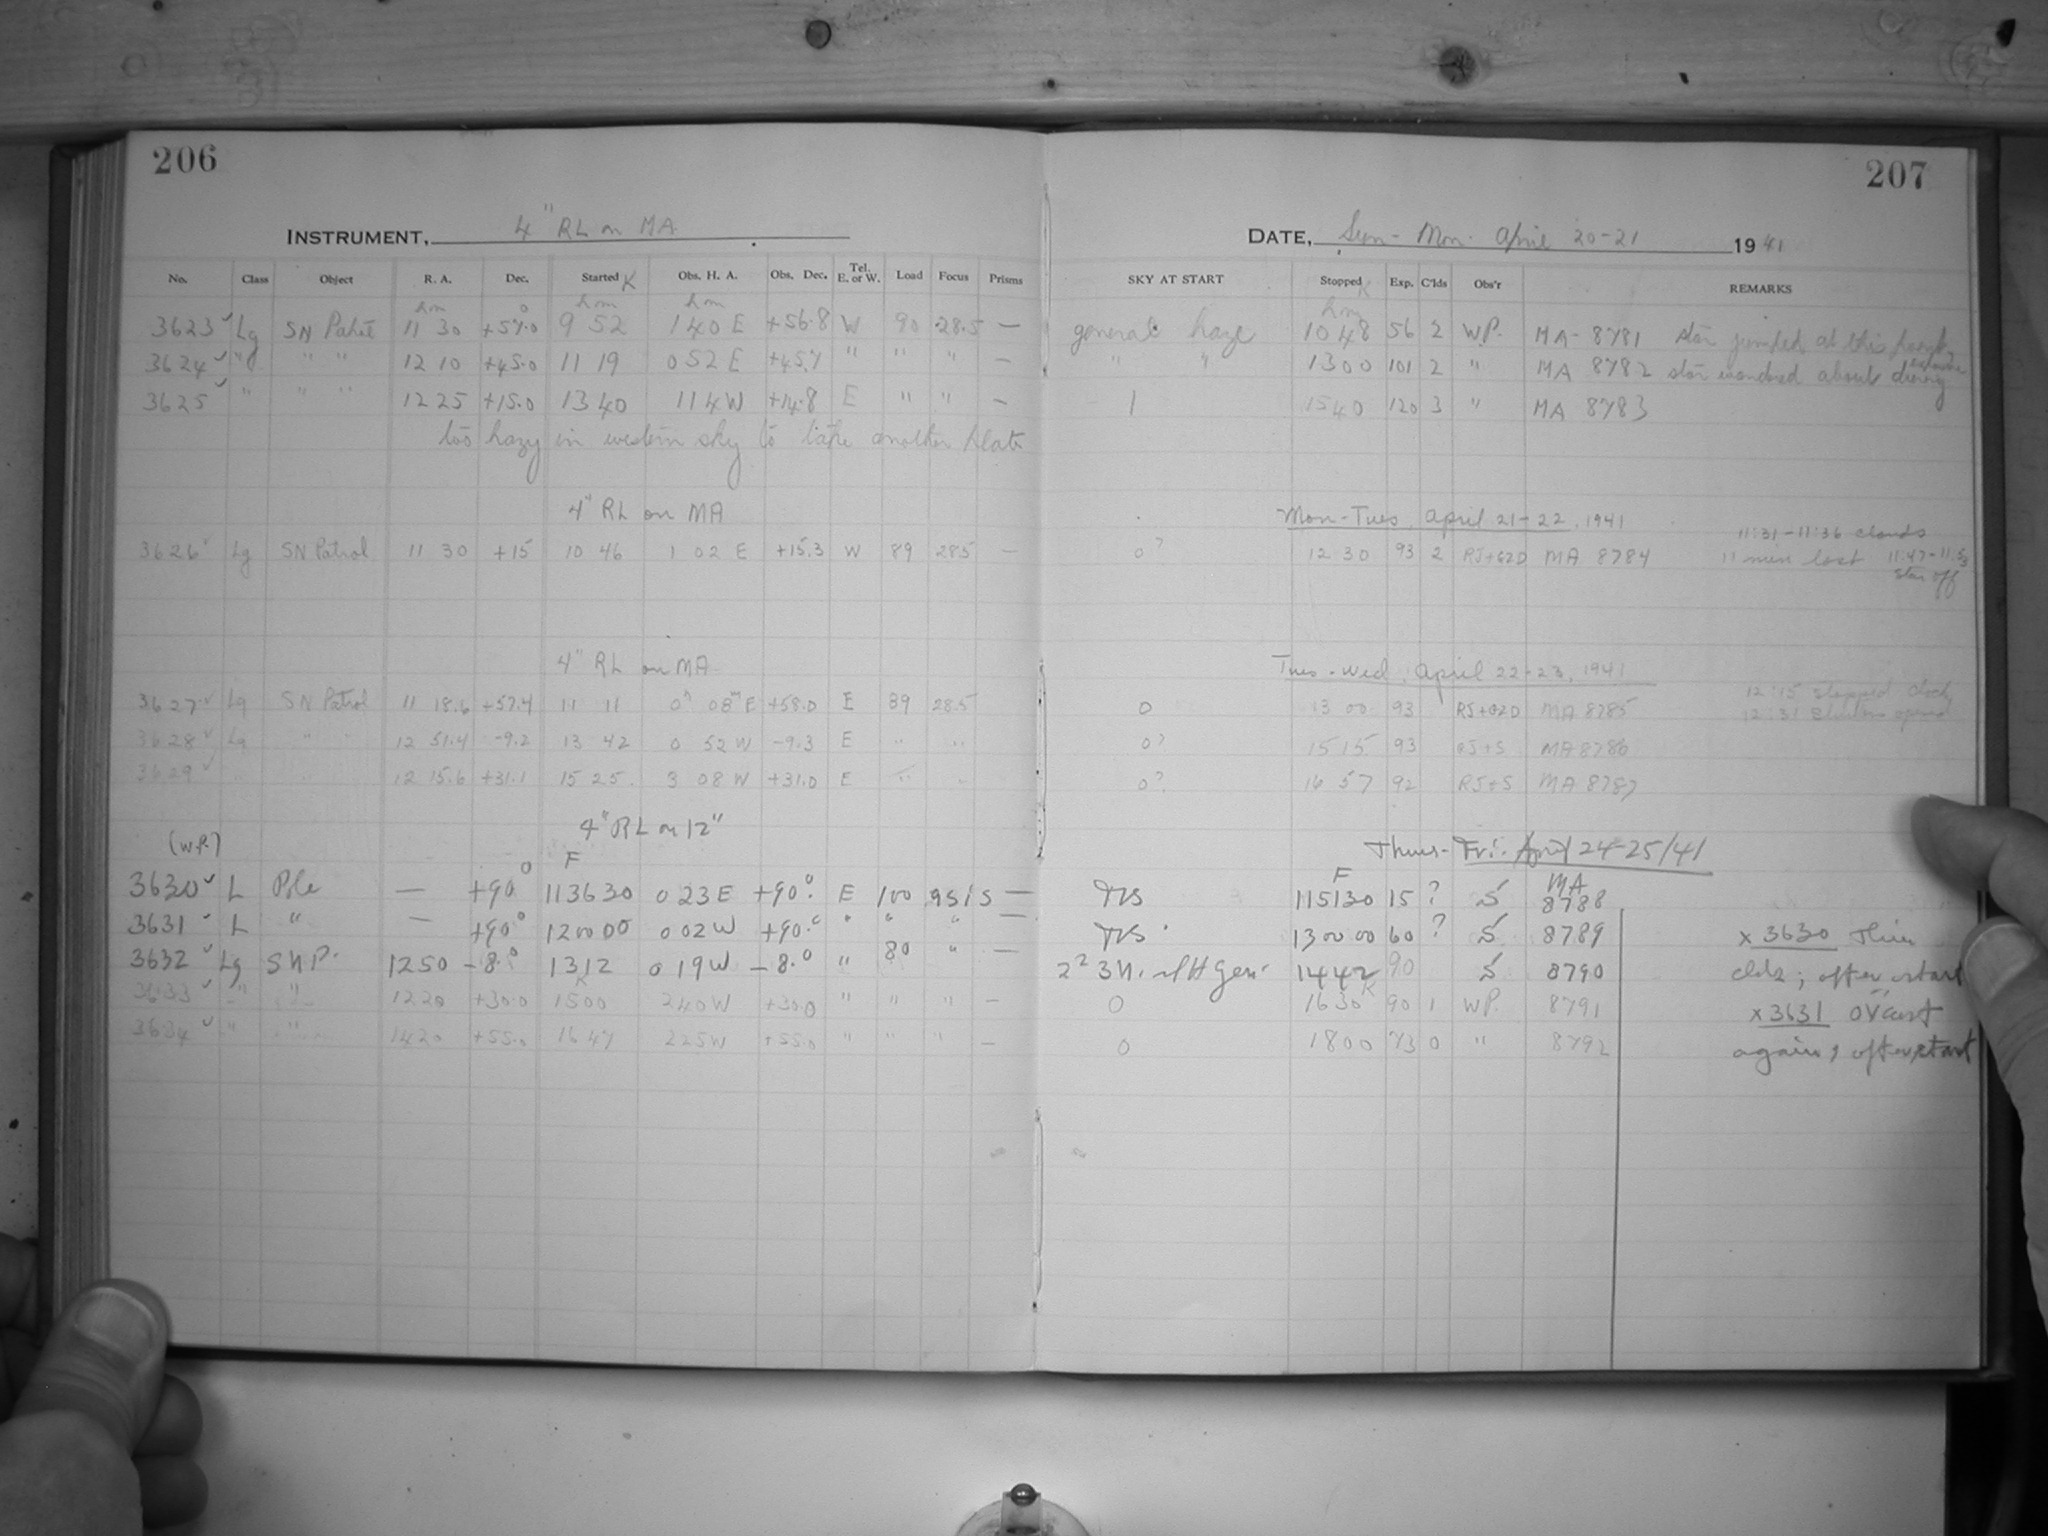 206
207
INSTRUMENT, 4" RL on MA
DATE, Sun - Mon. April 20-21 1941
No. Class Object R. A. Dec. Started K Obs. H. A. Obs. Dec. Tel. E. or W. Load Focus Prisms SKY AT START Stopped K Exp. C'lds Obs'r REMARKS
h m ° h m h m h m
3623 ✓ Lg SN Patrol 11 30 +57.0 9 52 1 40 E +56.8 W 90 28.5 — general haze 10 48 56 2 WP. MA- 8781 star jumped at this
3624 ✓ " " " 12 10 +45.0 11 19 0 52 E +45.7 " " " — " " 13 00 101 2 " MA 8782 star wandered about during
3625 ✓ " " " 12 25 +15.0 13 40 1 14 W +14.8 E " " — 1 15 40 120 3 " MA 8783
too hazy in western sky to take another plate
4" RL on MA
Mon-Tues, April 21-22, 1941
11:31-11:36 clouds
3626 ✓ Lg SN Patrol 11 30 +15 10 46 1 02 E +15.3 W 89 28.5 — 0? 12 30 93 2 RJ+G2D MA 8784 11 min lost 11:47-11:53
star off
4" RL on MA
Tues-Wed, April 22-23, 1941
12:15 stopped clock
3627 ✓ Lg SN Patrol 11 18.6 +57.4 11 11 0h 08m E +58.0 E 89 28.5 0 13 00 93 RJ+G2D MA 8785 12:31 opened
3628 ✓ Lg " " 12 51.4 -9.2 13 42 0 52 W -9.3 E " " 0? 15 15 93 RJ+S MA 8786
3629 ✓ " " 12 15.6 +31.1 15 25 3 08 W +31.0 E " " 0? 16 57 92 RJ+S MA 8787
4" RL on 12"
(W.P.)
Thurs- Fri. April 24-25/41
F F MA
3630 ✓ L Pole — +90° 113630 0 23 E +90.° E 100 9515 — 115130 15 ? S 8788
3631 ✓ L " — +90° 120000 0 02 W +90.° " " " — 130000 60 ? S 8789 x 3630 thin
3632 ✓ Lg S N P. 1250 -8.° 1312 0 19 W -8.° " 80 " — 1442 90 S 8790 clds; after start
3633 ✓ " " 1220 +30.0 K 1500 2 40 W +30.0 " " " — 0 K 1630 90 1 WP. 8791 x 3631 ov'cast
3634 ✓ " " 1420 +55.0 1647 2 25 W +55.0 " " " — 0 1800 73 0 " 8792 again, after start